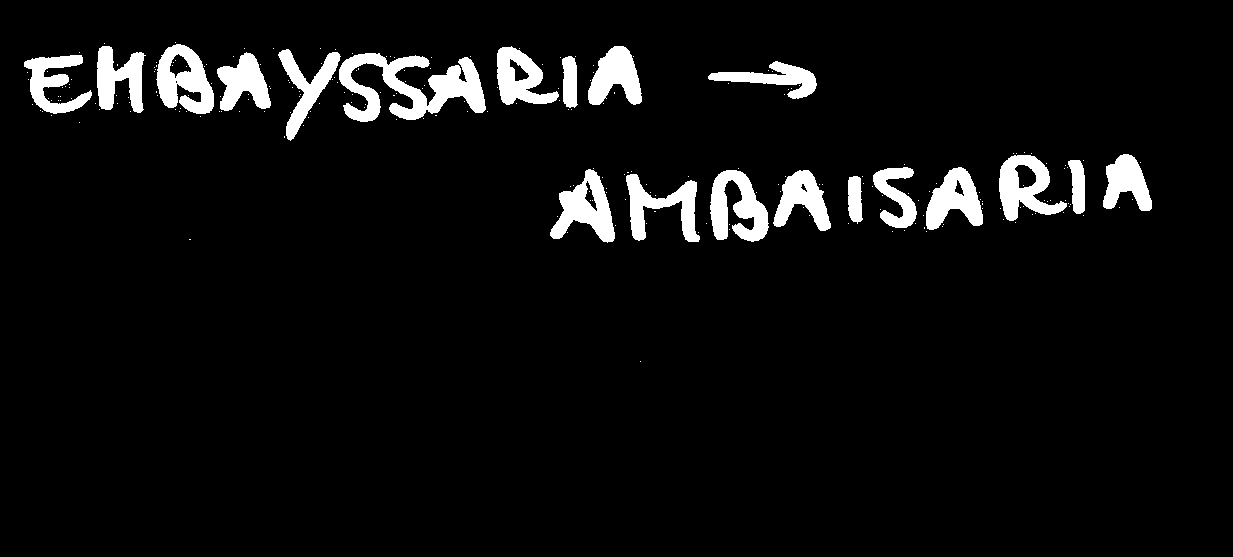 EMBAYSSARIA →
AMBAISARIA